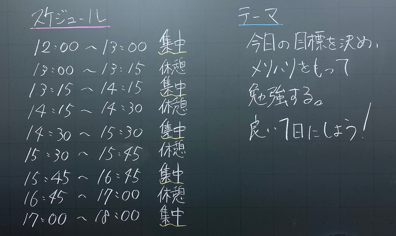 スケジュール
12:00 〜 13:00 集中
13:00 〜 13:15 休憩
13:15 〜 14:15 集中
14:15 〜 14:30 休憩
14:30 〜 15:30 集中
15:30 〜 15:45 休憩
15:45 〜 16:45 集中
16:45 〜 17:00 休憩
17:00 〜 18:00 集中
テーマ
今日の目標を決め、
メリハリをもって
勉強する。
良い1日にしよう!